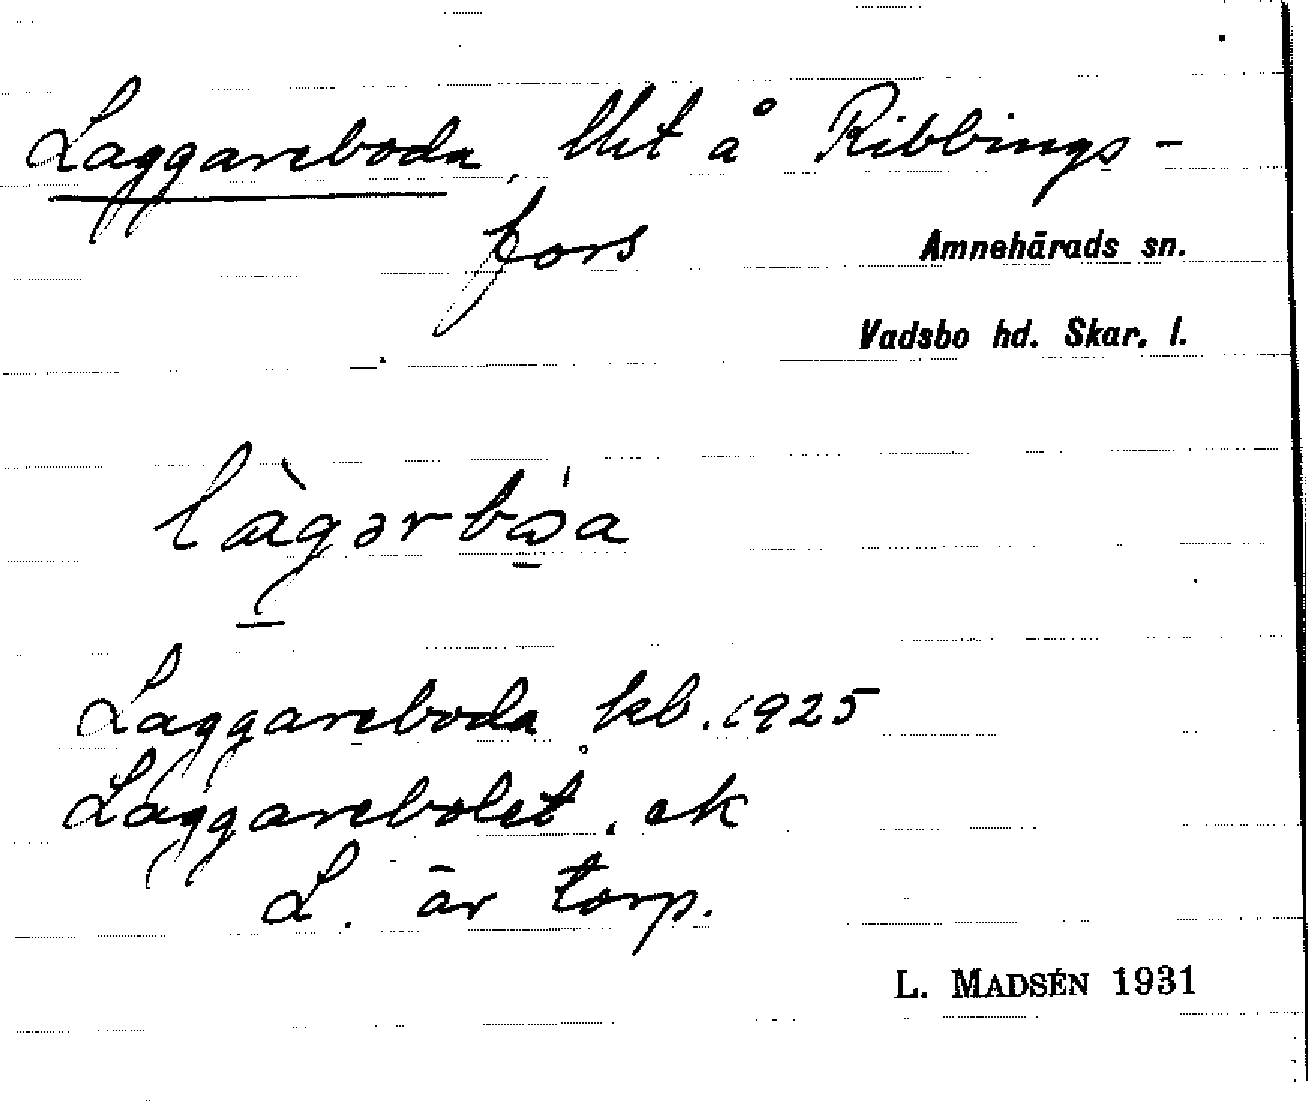 Laggareboda, lht å Ribbings-
fors
Amnehärads sn.
Vadsbo hd. Skar. l.
làgərbɷ́a
Laggareboda kb. 1925
Laggarebolet. ek
L. är torp.
L. MADSÉN 1931